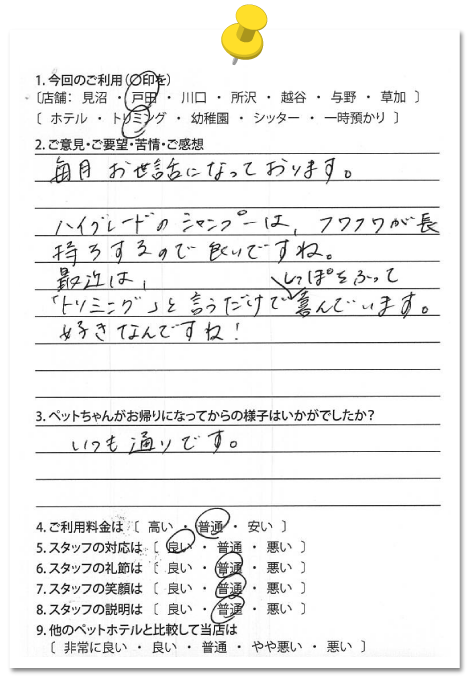 1. 今回のご利用(〇印を)
〔店舗： 見沼 ・ 戸田 ・ 川口 ・ 所沢 ・ 越谷 ・ 与野 ・ 草加 〕
〔 ホテル ・ トリミング ・ 幼稚園 ・ シッター ・ 一時預かり 〕
2. ご意見・ご要望・苦情・ご感想
毎月 お世話になっております。
ハイグレードのシャンプーは、フワフワが長
持ちするので良いですね。
最近は、
しっぽをふって
「トリミング」と言うだけで喜んでいます。
好きなんですね！
3. ペットちゃんがお帰りになってからの様子はいかがでしたか？
いつも通りです。
4. ご利用料金は 〔 高い ・ 普通 ・ 安い 〕
5. スタッフの対応は 〔 良い ・ 普通 ・ 悪い 〕
6. スタッフの礼節は 〔 良い ・ 普通 ・ 悪い 〕
7. スタッフの笑顔は 〔 良い ・ 普通 ・ 悪い 〕
8. スタッフの説明は 〔 良い ・ 普通 ・ 悪い 〕
9. 他のペットホテルと比較して当店は
〔 非常に良い ・ 良い ・ 普通 ・ やや悪い ・ 悪い 〕